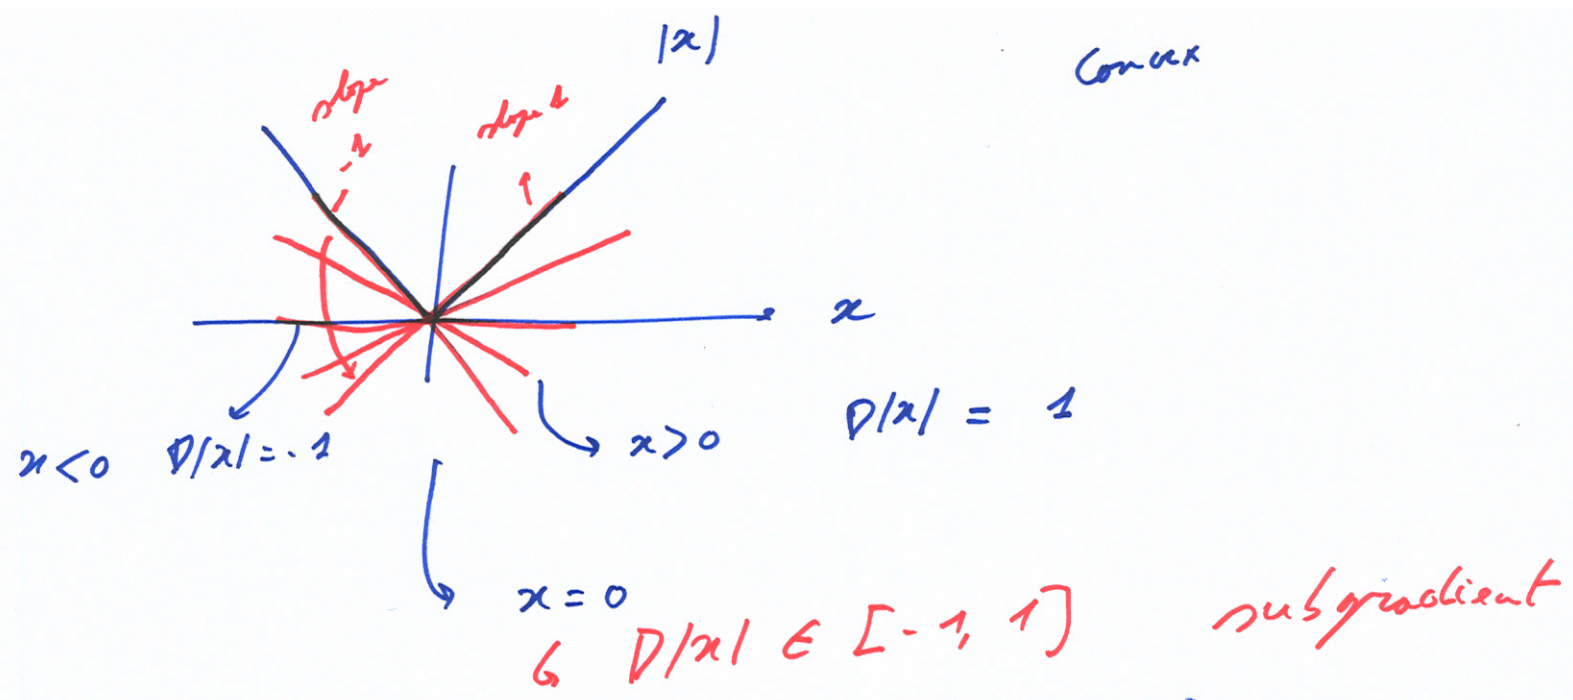 |x|
Convex
slope
-1
slope 1
x
x<0 D|x|=-1
x>0
D|x| = 1
x=0
D|x| ∈ [-1, 1]
subgradient